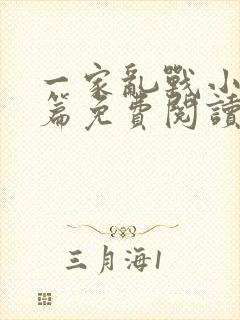 一家亂戰小
篇免費閱讀
三月海1